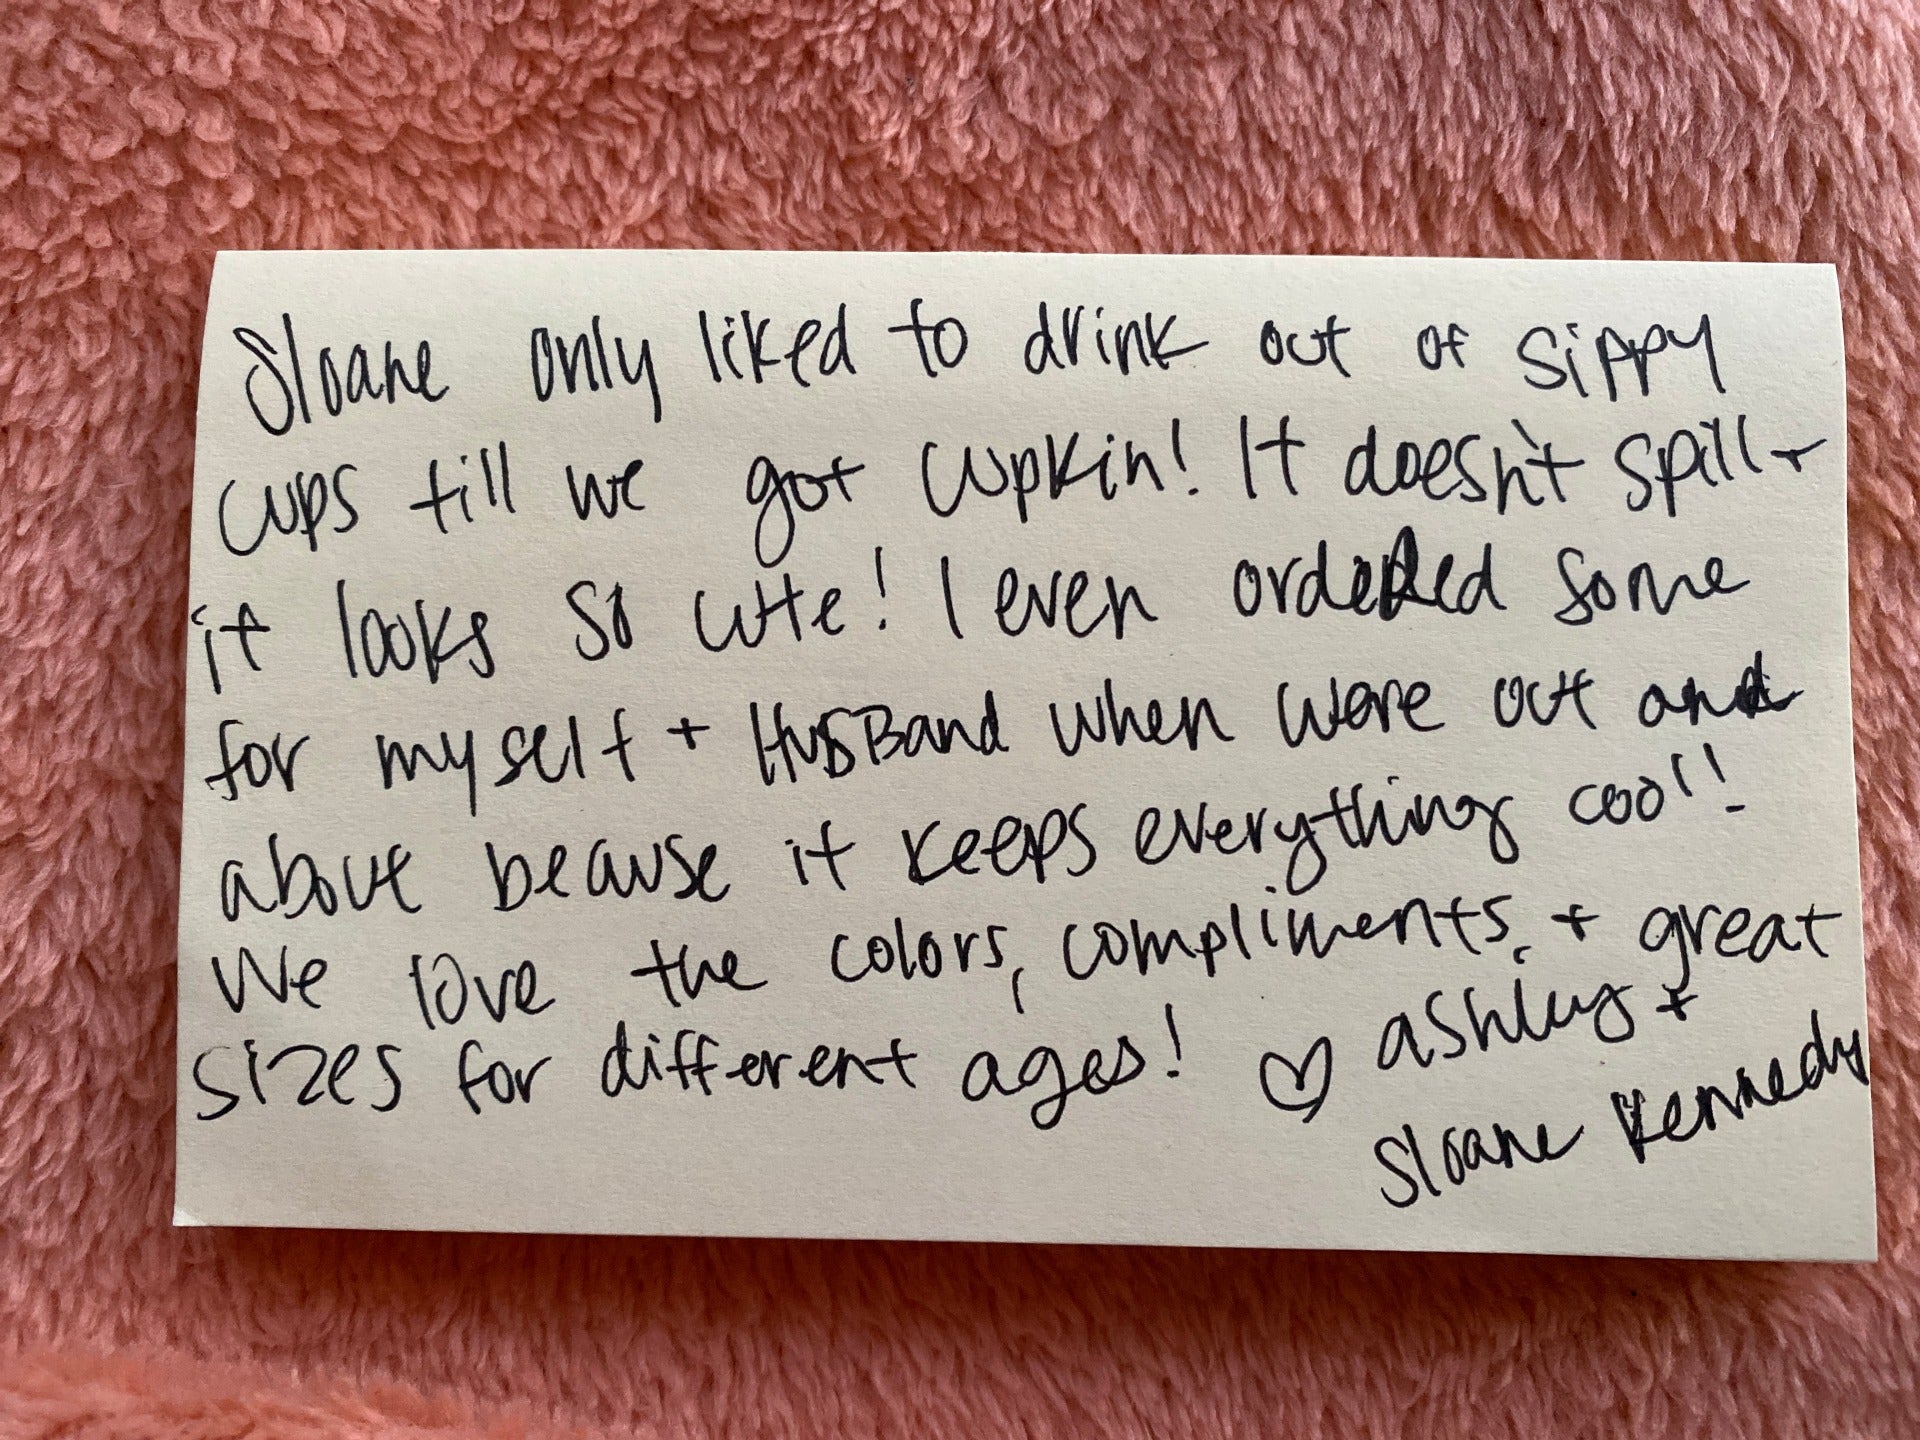 Sloane only liked to drink out of sippy
cups till we got cupkin! It doesn't spill +
it looks so cute! I even ordered some
for myself + HusBand when were out and
about because it keeps everything cool!!
We love the colors, compliments, + great
sizes for different ages! ♡ ashley +
Sloane Kennedy